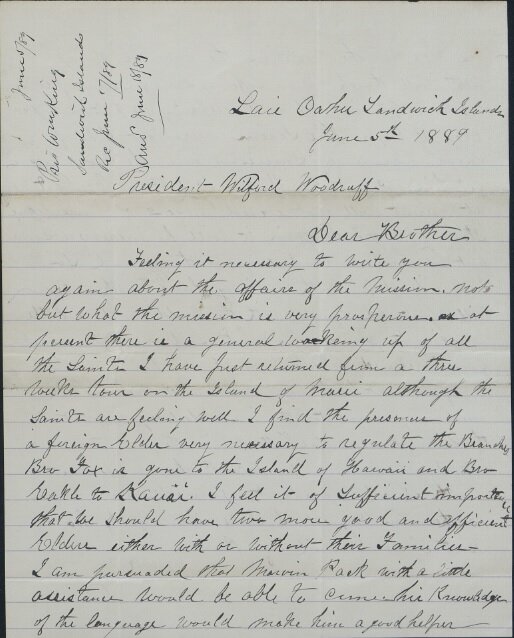 June 5/89
Pres Wm King
Sandwich Islands
Rec June 17/89
Ans June 18/89
Laie Oahu Sandwich Islands
June 5th 1889
President Wilford Woodruff
Dear Brother
Feeling it necessary to write you
again about the affairs of the Mission. not
but what the mission is very prosperous. at
present there is a general waking up of all
the Saints I have just returned from a three
weeks tour on the Island of Maui although the
Saints are feeling well I find the presence of
a foreign Elder very necessary to regulate the Branches
Bro Fox is gone to the Island of Hawaii and Bro
to Kauai. I feel it of Sufficient importance
that we should have two more good and efficient
Elders either with or without their Families
I am pursuaded that Marvin Pack with a little
assistance would be able to come his Knowledge
of the language would make him a good helper